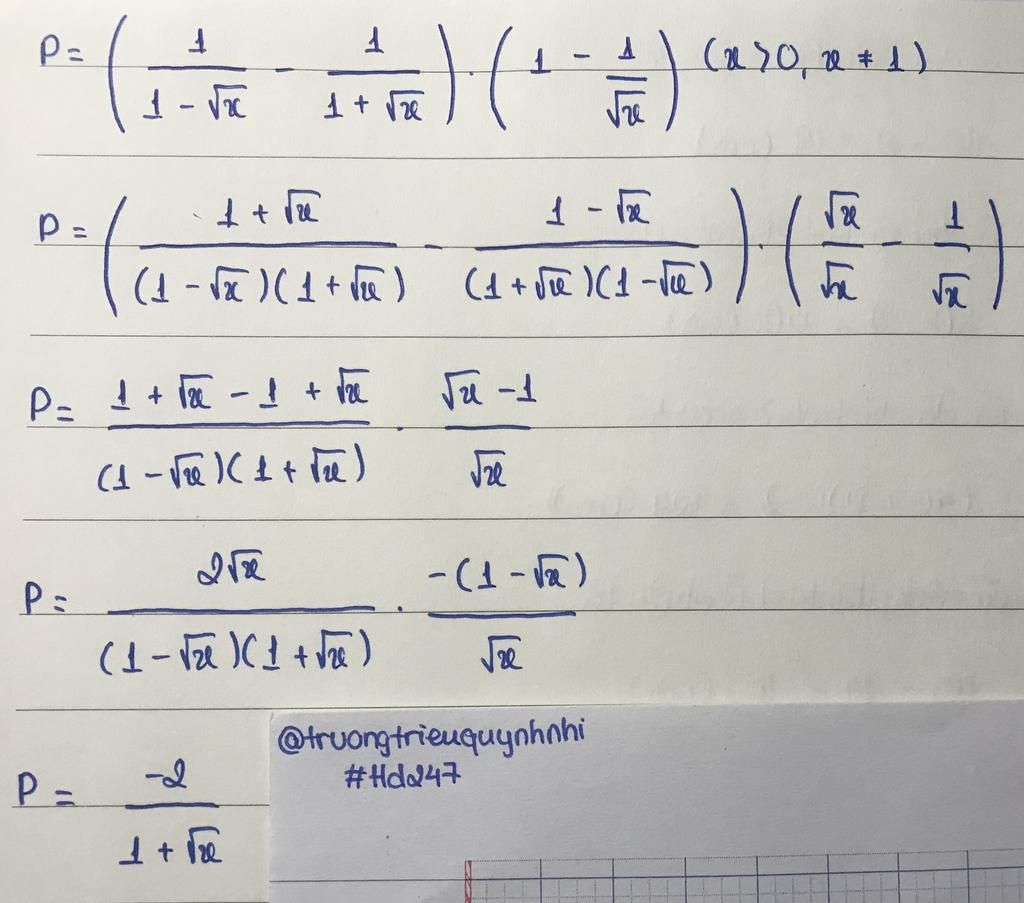 P = ( 1/(1 - √x) - 1/(1 + √x) ) . ( 1 - 1/√x ) (x > 0, x ≠ 1)
P = ( (1 + √x)/((1 - √x)(1 + √x)) - (1 - √x)/((1 + √x)(1 - √x)) ) . ( √x/√x - 1/√x )
P = (1 + √x - 1 + √x)/((1 - √x)(1 + √x)) . (√x - 1)/√x
P = 2√x/((1 - √x)(1 + √x)) . -(1 - √x)/√x
P = -2/(1 + √x)
@truongtrieuquynhnhi
#Hd247